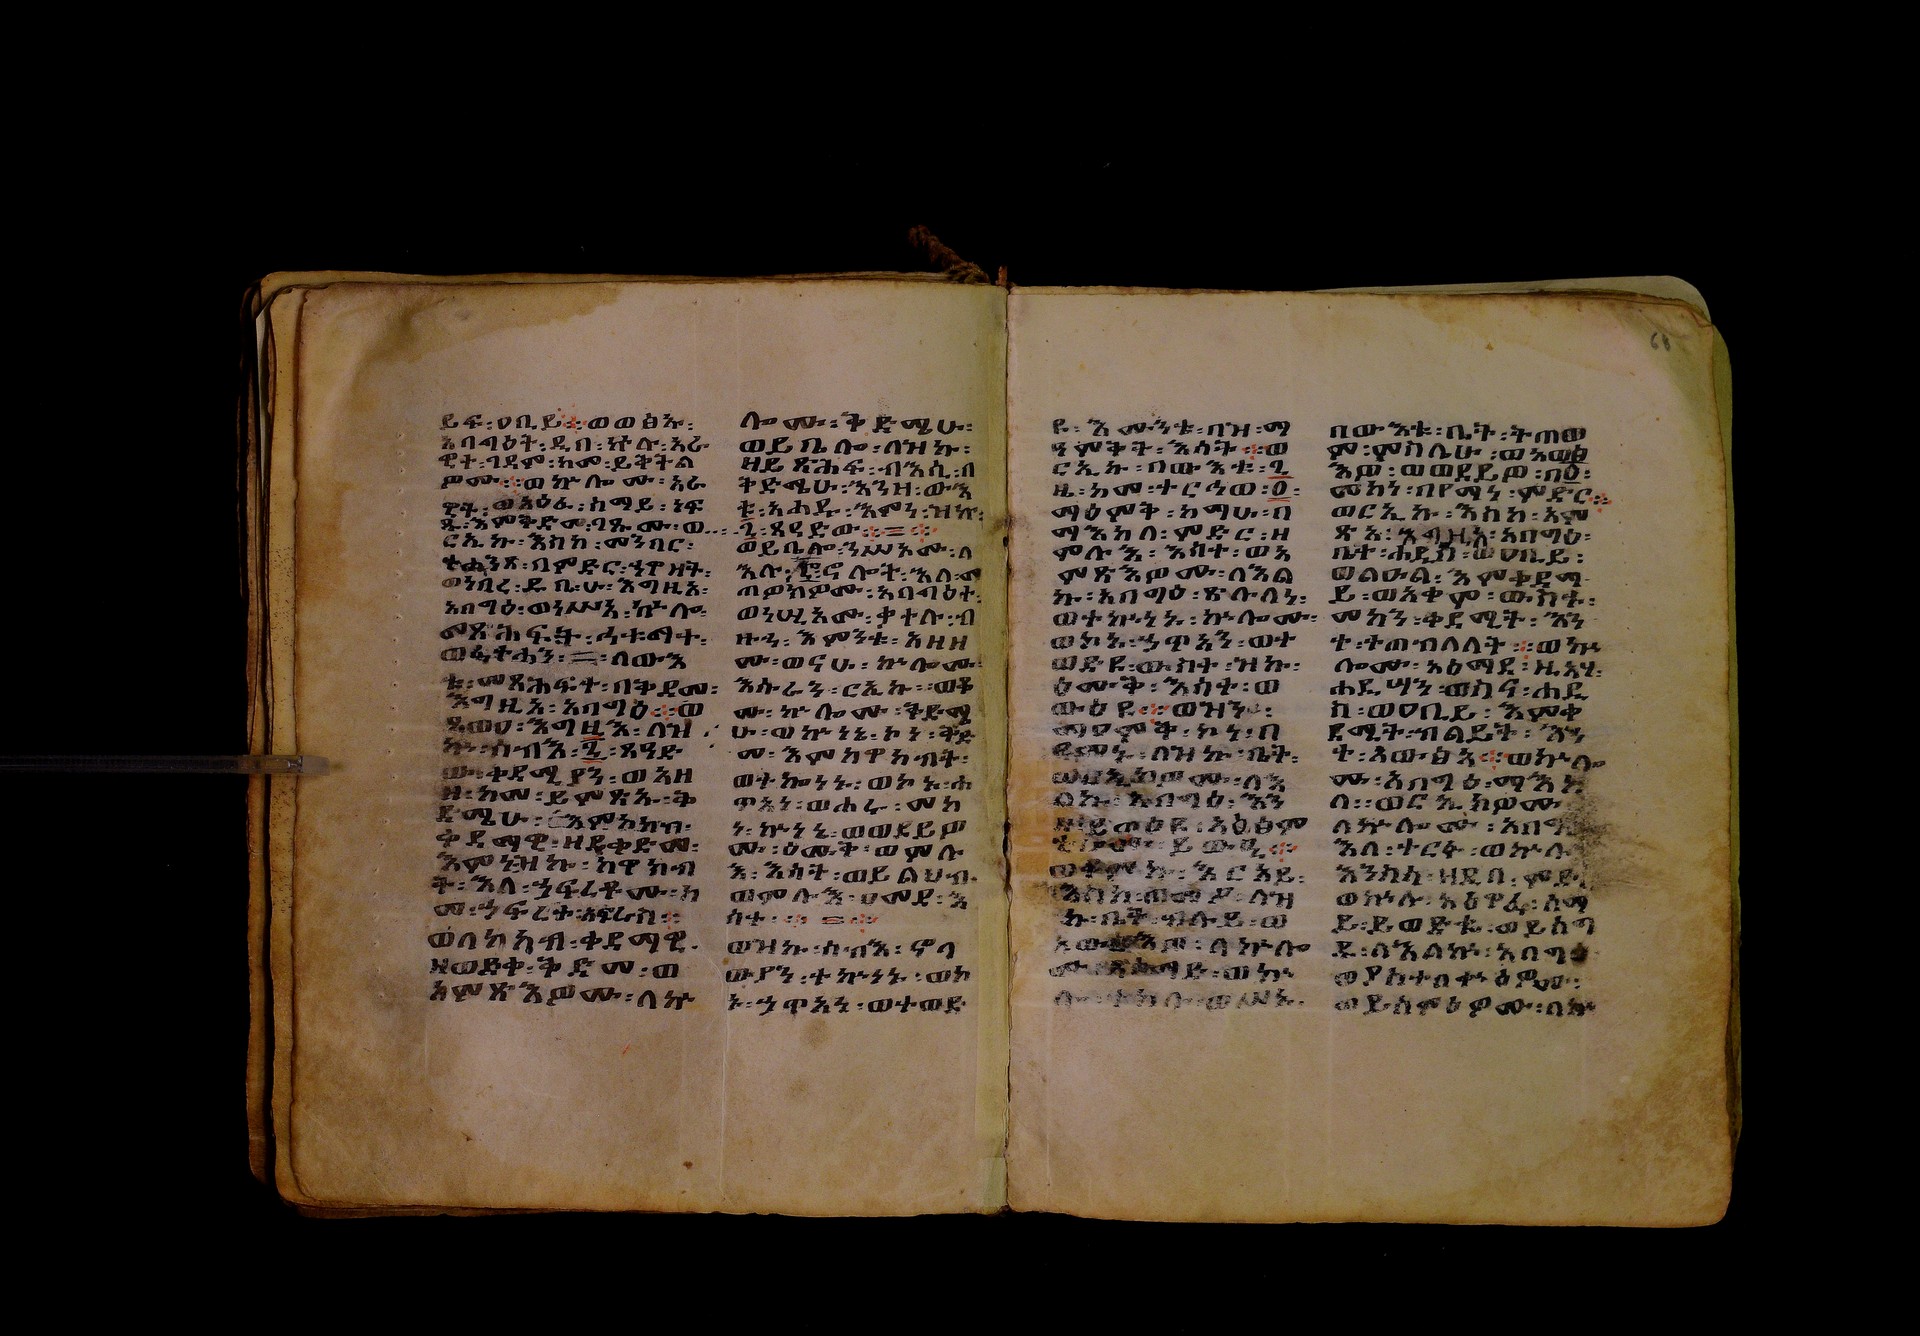 ይፍ፡ዐቢይ፡ወወፅኡ፡
አባግዕት፡ዲበ፡ኵሉ፡አራ
ዊተ፡ገዳም፡ከመ፡ይቅትል
ዎሙ፡ወኵሎሙ፡አራ
ዊት፡ወአዕፋ፡ሰማይ፡ነፍ
ጹ፡እምቅድመ፡ገጹሙ፡ወ
ርኢኩ፡እስከ፡መንበር፡
ተሐንጸ፡በምድር፡ሃዋዘት፡
ወነበረ፡ዲቤሁ፡እግዚአ፡
አባግዕ፡ወነሥአ፡ኵሎ፡
መጻሕፍት፡ኅቱማተ፡
ወፈትሐን፡=፡ለውእ
ቱ፡መጻሕፍተ፡በቅድመ፡
እግዚአ፡አባግዕ፡ወ
ጸውዐ፡እግዚእ፡ለዝ
ኩ፡ሰብእ፡፯፡ጸዓድ
ው፡ቀደሚያን፡ወአዘ
ዘ፡ከመ፡ይምጽኡ፡ቅ
ድሜሁ፡
ቀዳማዊ፡ዘይቀድመ፡
እምነዝኩ፡ከዋክብ
ት፡እለ፡ኀፍረቶሙ፡ከ
መ፡ኀፍረተ፡አፍራስ፡
ወለከካብ፡ቀዳማዊ፡
ዘወድቀ፡ቅድመ፡ወ
አምጽእዎሙ፡ለኵ
ሎሙ፡ቅድሜሁ፡
ወይቤሎ፡ለዝኩ፡
ዘይጽሕፍ፡ብእሲ፡በ
ቅድሜሁ፡እንዘ፡ውእ
ቱ፡አሐዱ፡እምነ፡ዝኩ፡
፯፡ጸዓድው፡=፡
ወይቤሎ፡ንሥኦሙ፡ለ
እሉ፡፸ኖሎት፡እለ፡መ
ጠዎክዎሙ፡አባግዕተ፡
ወነሢኦሙ፡ቀተሉ፡ብ
ዙኃ፡እምንቱ፡አዘዘ
ሙ፡ወናሁ፡ኵሎሙ፡
እሱራን፡ርኢኩ፡ወቆ
ሙ፡ኵሎሙ፡ቅድሜ
ሁ፡ወኵነኔ፡ኮነ፡ቅድ
መ፡እምከዋክብት፡
ወተኰነኑ፡ወኮኑ፡ኃ
ጥአነ፡ወሐሩ፡መካ
ነ፡ኵነኔ፡ወወደይዎ
ሙ፡ዕሙቅ፡ወምሉ
እ፡እሳት፡ወይልህብ፡
ወምሉእ፡ዐመደ፡እ
ሳት፡=፡
ወዝኩ፡ሰብእ፡ኖላ
ውያን፡ተኰነኑ፡ወኮ
ኑ፡ኃጥአን፡ወተወድ
ዩ፡እሙንቱ፡በዝ፡ማ
ዓምቅት፡እሳት፡ወ
ርኢኩ፡በውእቱ፡ጊ
ዜ፡ከመ፡ተርኅወ፡፩፡
ማዕምቅ፡ከማሁ፡በ
ማእከለ፡ምድር፡ዘ
ምሉእ፡እሳተ፡ወአ
ምጽእዎሙ፡ለእል
ኩ፡አባግዕ፡ጽሉላነ፡
ወተኰነኑ፡ኵሎሙ፡
ወኮኑ፡ኃጥአን፡ወተ
ወድዩ፡ውስተ፡ዝኩ፡
ዕሙቅ፡እሳተ፡ወ
ውዕዩ፡ወዝን፡
ማዐምቅ፡ኮነ፡በ
የማነ፡ለዝኩ፡ቤት፡
አባግዕ፡እን
ዘ፡ይውዕዩ፡አዕፅም
ቲሆሙ፡ይውዒ፡
ወቆምኩ፡እርአይ፡
እስከ፡ለዝ
ኩ፡ቤት፡ብሉይ፡ወ
ለኵሎ
ወኵ
በውእቱ፡ቤት፡ትጠወ
ም፡ምስሌሁ፡ወአወፅ
እዎ፡ወወደይዎ፡በ፩፡
መካነ፡በየማነ፡ምድር፡
ወርኢኩ፡እስከ፡አም
ጽአ፡እግዚአ፡አባግዕ፡
ቤተ፡ሐዲስ፡ወዐቢይ፡
ወልዑል፡እምቀዳማ
ይ፡ወአቀሞ፡ውስተ፡
መካን፡ቀዳሚት፡እን
ተ፡ተጠብለለት፡ወኵ
ሎሙ፡አዕማደ፡ዚአሃ፡
ሐዲሣን፡ወስና፡ሐዲ
ስ፡ወዐቢይ፡እምቀ
ዳሚት፡ብልይት፡እን
ት፡አውፅአ፡ወኵሎ
ሙ፡አባግዕ፡ማእከ
ላ፡ወርኢክዎሙ፡
ለኵሎሙ፡አባግዕ
እለ፡ተርፉ፡ወኵሉ
እንስሳ፡ዘዲበ፡ምድር
ወኵሉ፡አዕዋፈ፡ሰማ
ይ፡ይወድቁ፡ወይሰግ
ዱ፡ለእልኩ፡አባግዕ
ወያስተበቍዕዎሙ፡
ወይሰምዕዎሙ፡በኵ